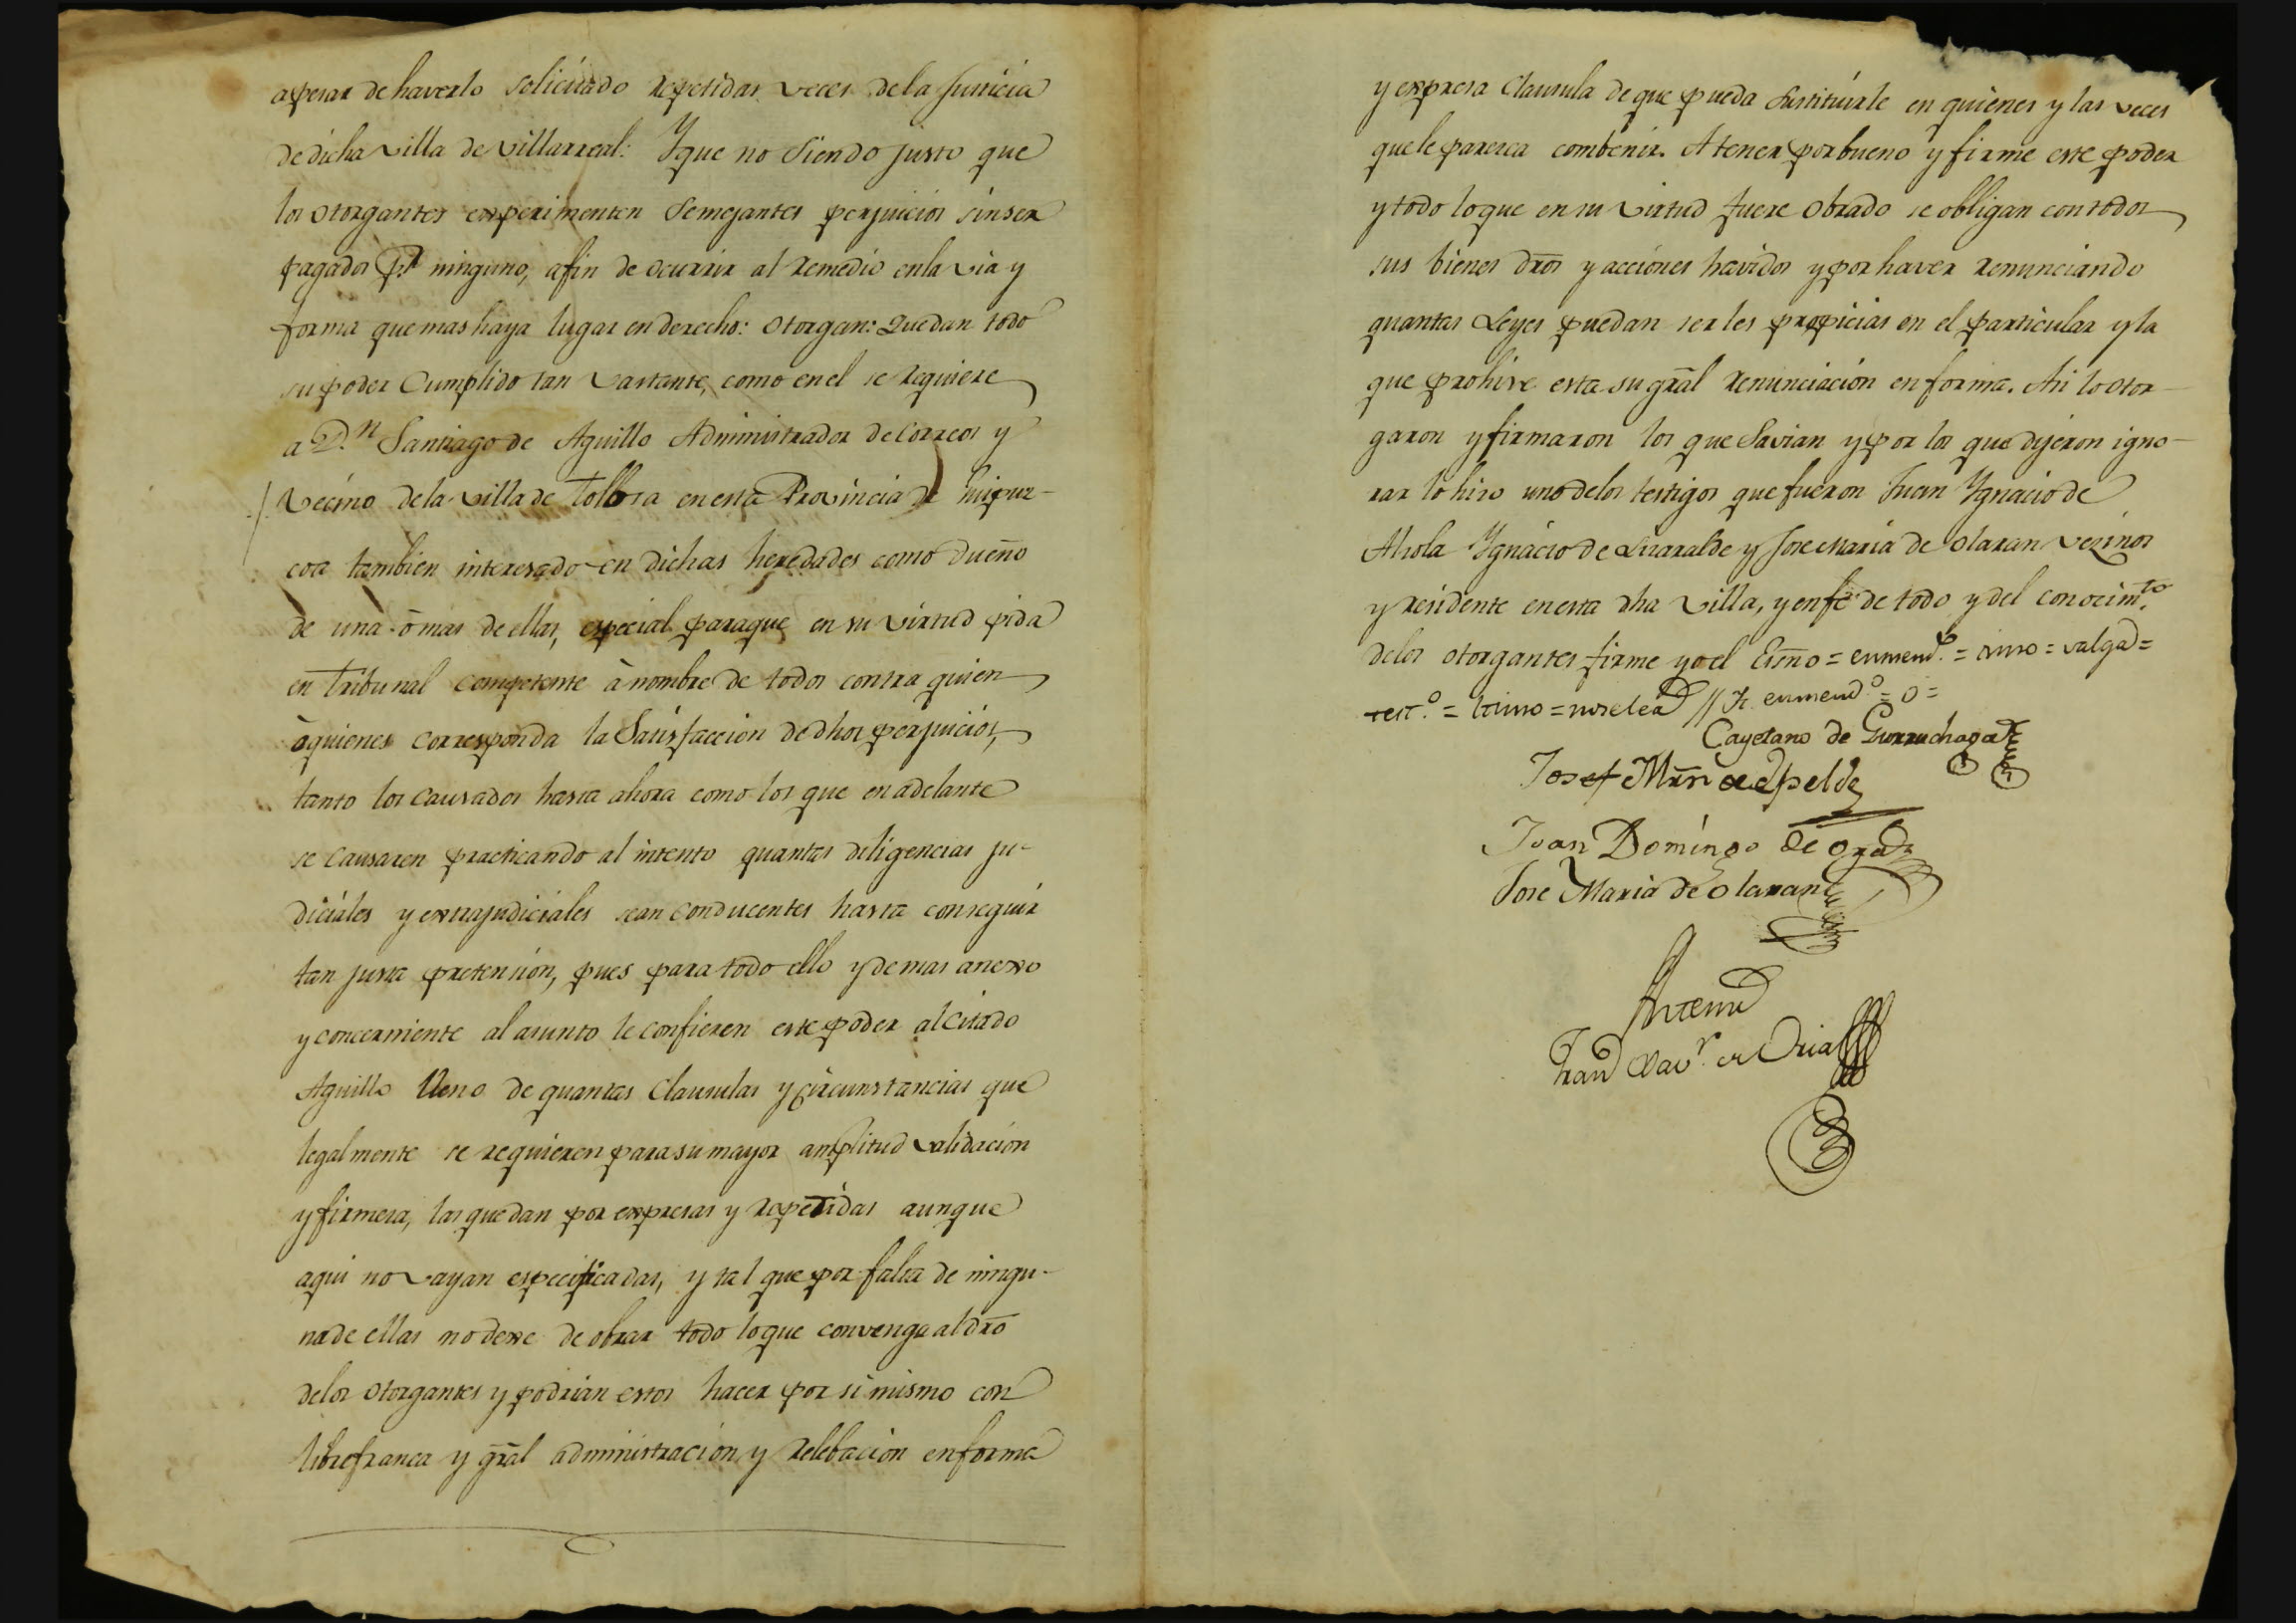 apesar de haverlo solicitado repetidas veces de la Justicia
de dicha villa de Villarreal: Y que no siendo justo que
los otorgantes experimenten semejantes perjuicios sin ser
pagados pr ninguno, afin de ocurrir al remedio en la via y
forma que mas haya lugar en derecho: Otorgan: Que dan todo
su poder Cumplido tan vastante, como en el se requiere
a D.n Santiago de Aguillo Administrador de Correos y
vecino de la villa de Tollosa en esta Provincia de Guipuz-
coa tambien interesado en dichas heredades como dueño
de una ò mas de ellas, especial para que en su virtud pida
en Tribunal competente à nombre de todos contra quien
òquienes corresponda la Satisfaccion de dhos perjuicios,
tanto los causados hasta ahora como los que en adelante
se causaren practicando al intento quantas diligencias ju-
diciales y extrajudiciales sean conducentes hasta conseguir
tan justa pretension, pues para todo ello y demas anexo
y concerniente al asunto le confieren este poder al citado
Aguillo lleno de quantas Clausulas y circunstancias que
legalmente se requieren para su mayor amplitud validacion
y firmesa, las que dan por expresas y repetidas aunque
aqui no vayan especificadas, y tal que por falta de ningu-
na de ellas no dexe de obrar todo lo que convenga al dro
de los otorgantes y podrian estos hacer por si mismo con
libre franca y gral administracion y relebacion en forma
y expresa Clausula de que pueda sustituirle en quienes y las veces
que le paresca combenir. A tener por bueno y firme este poder
y todo lo que en su virtud fuere obrado se obligan con todos
sus bienes dros y acciones havidos y por haver renunciando
quantas Leyes puedan serles propicias en el particular y la
que prohive esta su gral renunciacion en forma. Asi lo otor-
garon y firmaron los que savian y por los que dijeron igno-
rar lo hiso uno de los testigos que fueron Juan Ygnacio de
Alsola Ygnacio de Lisaralde y Jose Maria de Olaran vezinos
y residente en esta dha villa, y en fe de todo y del conocimto.
de los otorgantes firme yo el Esno = enmend.o = = valga =
test.o = = no se lea // Yt. enmend.o = o =
Cayetano de Gurruchaga
Josef Mrn de Epelde
Juan Domingo de
Jose Maria de Olaran
Antemi
Fran Xavr. de Oria